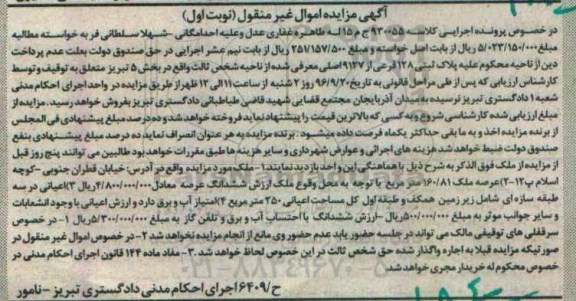 آگهی مزایده اموال غیر منقول (نوبت اول)
در خصوص پرونده اجرایی کلاسه ۹۳۰۰۵۵ ج م ۱۵ له طاهره غفاری عدل وعلیه احد امگانی -شهلا سلطانی فر به خواسته مطالبه
مبلغ ۵/۰۲۳/۱۵۰/۰۰۰ ریال از بابت اصل خواسته و مبلغ ۲۵۱/۱۵۷/۵۰۰ ریال از بابت نیم عشر اجرایی در حق صندوق دولت بعلت عدم پرداخت
دین از ناحیه محکوم علیه پلاک ثبتی ۱۲۸ فرعی از ۹۱۲۷ اصلی معرفی شده از ناحیه شخص ثالث واقع در بخش ۵ تبریز متعلق به توقیف و توسط
کارشناس ارزیابی که پس از طی مراحل قانونی به تاریخ ۹۶/۹/۲۰ روز ۲ شنبه از ساعت ۱۱ الی ۱۲ ظهر از طریق مزایده در واحد اجرای احکام مدنی
شعبه ۱ دادگستری تبریز نرسیده به میدان آذربایجان مجتمع قضایی شهید قاضی طباطبائی دادگستری تبریز بفروش خواهد رسید. مزایده از
مبلغ ارزیابی شده کارشناسی شروع و به کسی که بالاترین قیمت را پیشنهاد نماید فروخته خواهد شد و ده درصد مبلغ پیشنهادی فی المجلس
از برنده مزایده اخذ و به ما بقی حداکثر یکماه فرصت داده میشود. برنده مزایده به هر عنوان انصراف نماید ده درصد مبلغ پیشنهادی بنفع
صندوق دولت ضبط خواهد شد هزینه های اجرائی و عوارض شهرداری و سایر هزینه ها طبق مقررات خواهد بود طالبین می توانند پنج روز قبل
از مزایده از ملک فوق الذکر به شرح ذیل با هماهنگی این واحد بازدید نمایند: ۱- ملک مورد مزایده واقع در آدرس: خیابان قطران جنوبی - کوچه
اسلام پ ۱۲-۲) عرصه ملک ۱۶۰/۸۱ متر مربع با توجه به محل وقوع ملک ارزش ششدانگ عرصه معادل ۴/۸۰۰/۰۰۰/۰۰۰ ریال ۳) اعیانی در سه
طبقه سازه ای شامل زیر زمین همکف و طبقه اول کل مساحت اعیانی ۲۵۰ متر مربع ۴) امتیاز آب و برق دارد و ارزش اعیانی با وجود انشعابات
و سایر جوانب موثر به مبلغ ۵۰۰/۰۰۰/۰۰۰ ریال -ارزش ششدانگ با احتساب آب و برق و تلفن گاز به مبلغ ۵/۳۰۰/۰۰۰/۰۰۰ ریال ۱- در خصوص
سرقفلی های توقیفی مالک می تواند در جلسه حضور یابد عدم حضور وی مانع از انجام مزایده نخواهد شد ۲- در خصوص اموال غیر منقول در
صورتیکه مزایده قبلا به اجاره واگذار شده حق شخص ثالث در این خصوص لحاظ خواهد شد. ۳- مفاد ماده ۱۴۴ قانون اجرای احکام مدنی در
خصوص محکوم له خریدار مجری خواهد شد.
ح/۶۴۰۹ اجرای احکام مدنی دادگستری تبریز - نامور